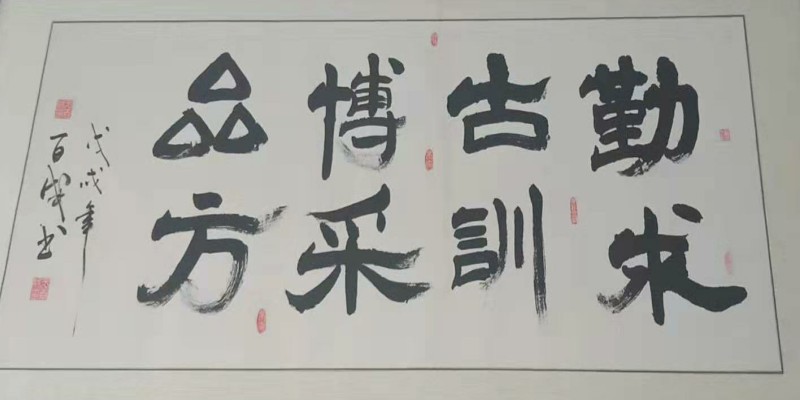 勤求
古訓
博采
众方
戊戌年
百书